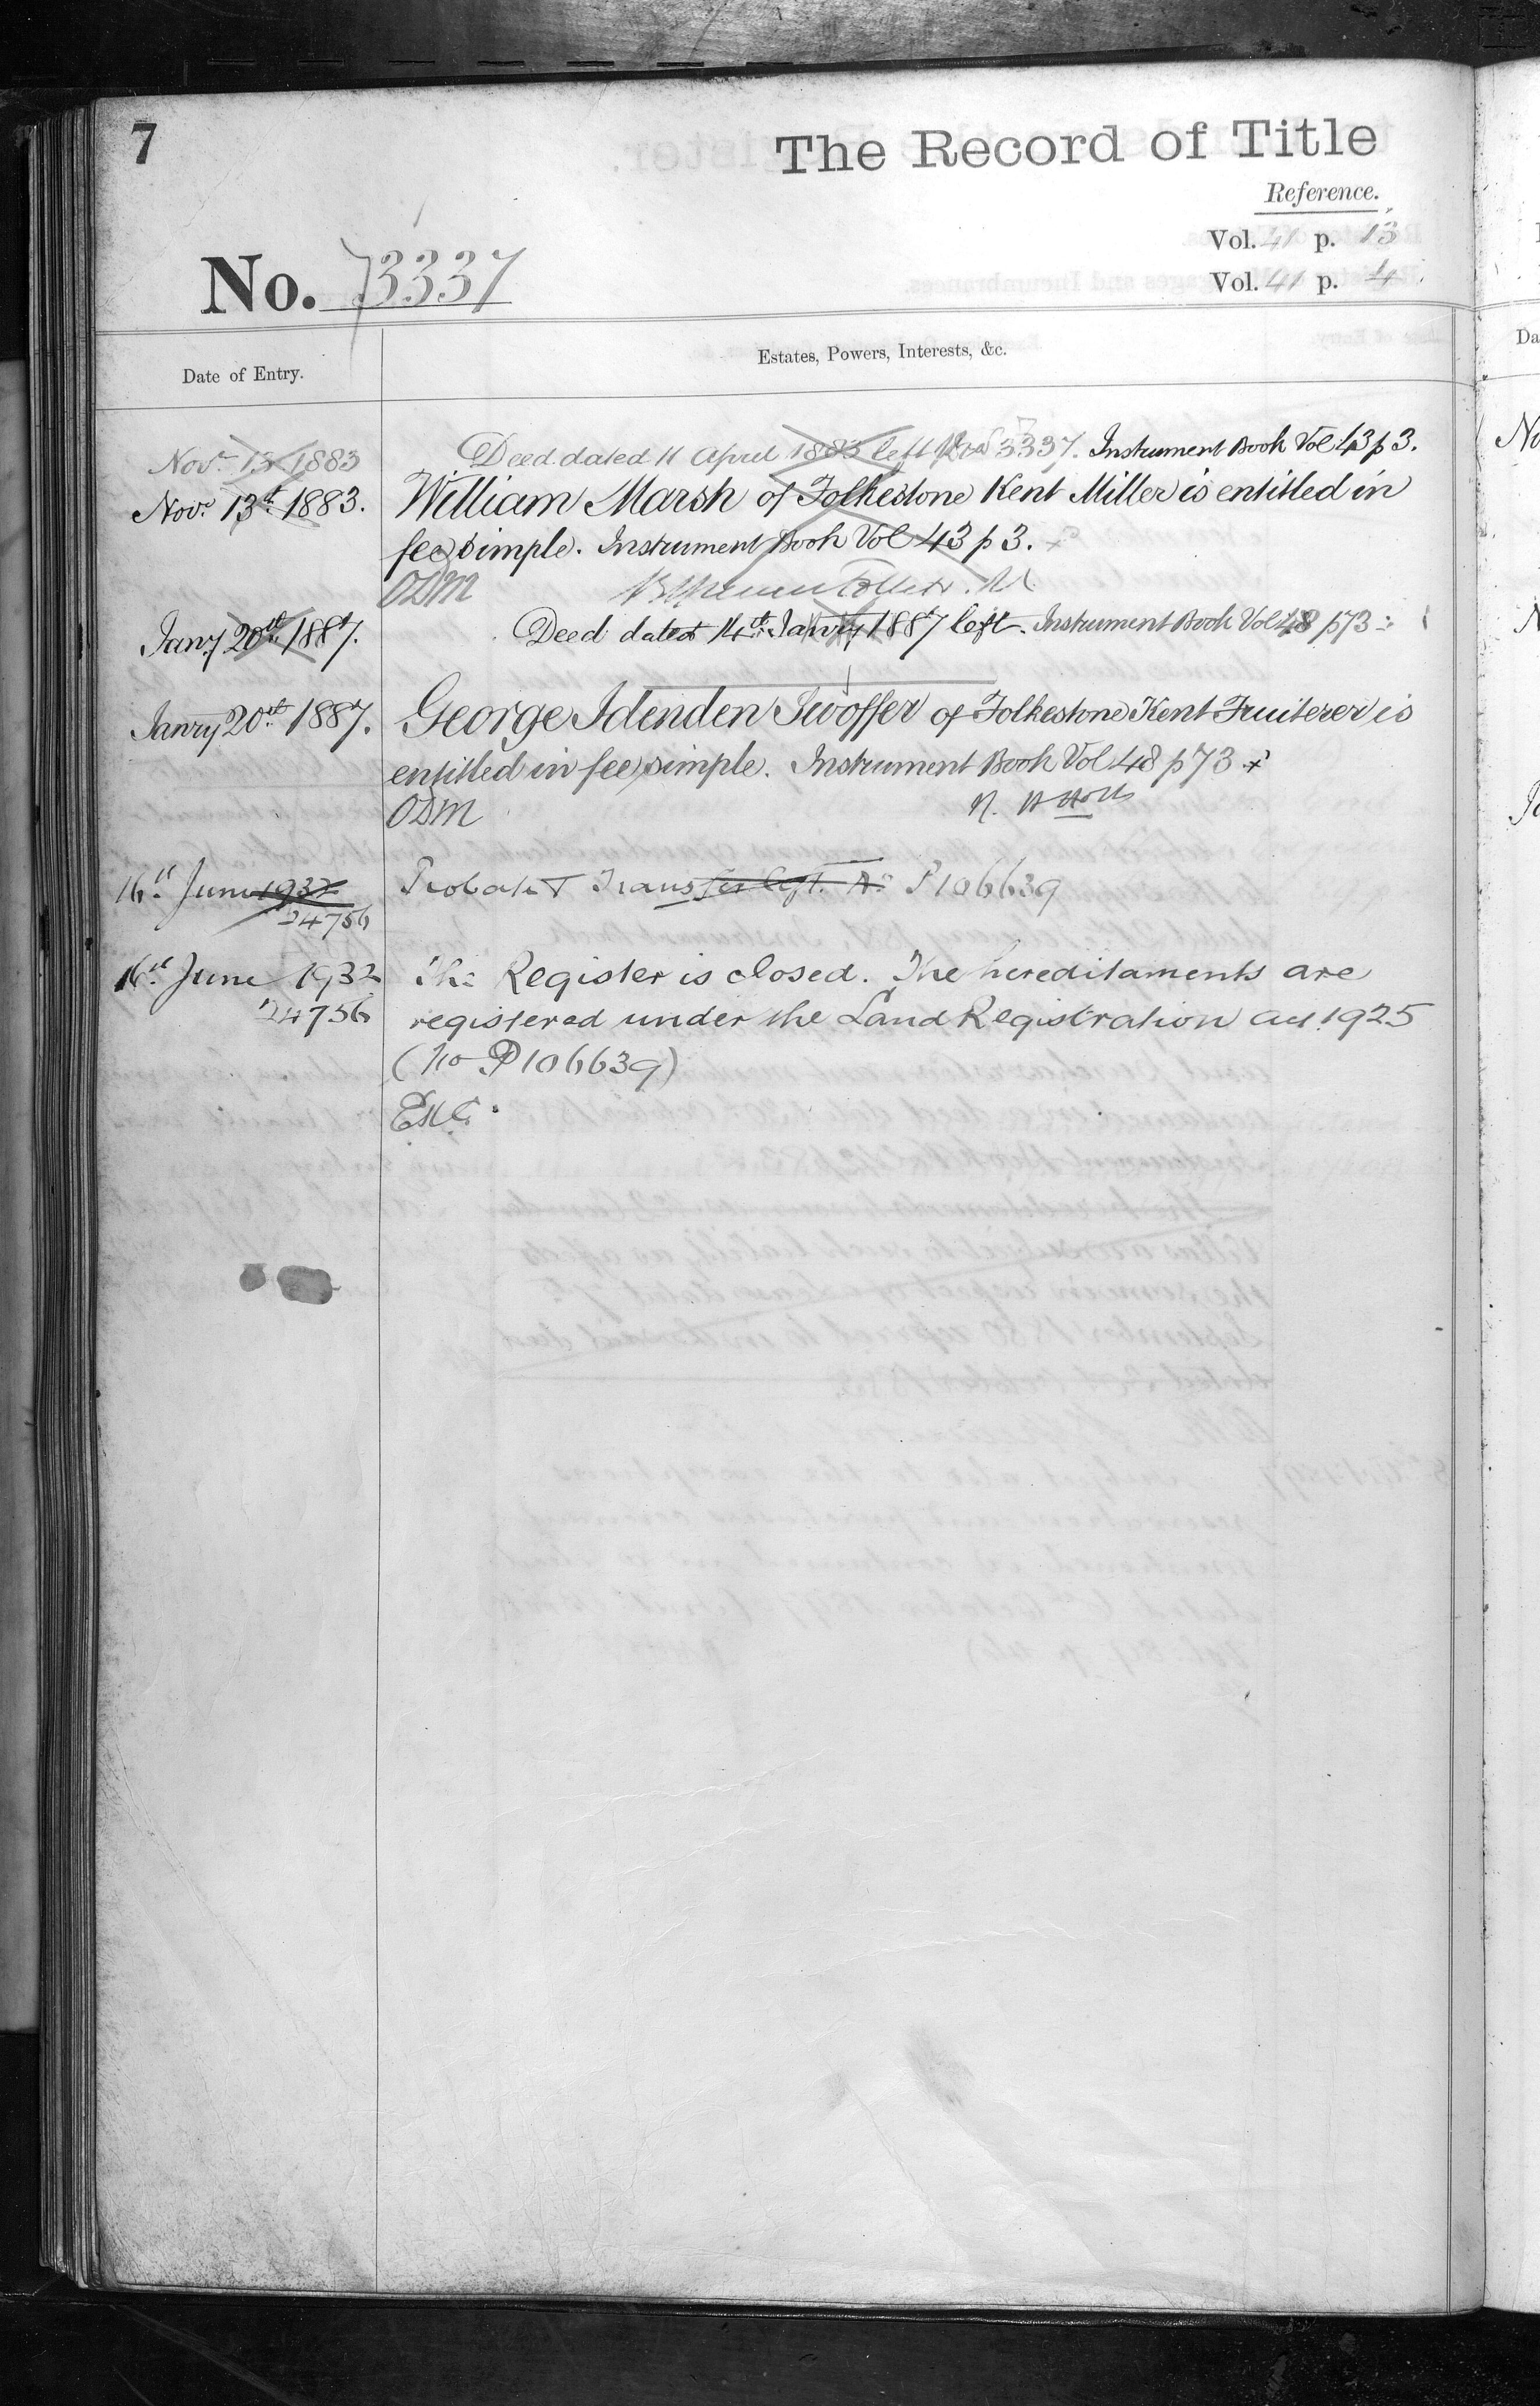 7
The Record of Title
Reference.
Vol. 41 p. 13
Vol. 41 p. 4
No. 3337
Date of Entry.
Estates, Powers, Interests, &c.
Novr 13 1883
Deed dated 11 April 1883 left 3337. Instrument Book Vol 43 p 3.
Novr 13th 1883.
William Marsh of Folkestone Kent Miller is entitled in
fee simple. Instrument Book Vol 43 p 3.
ODM
Janry 20th 1887.
Deed dated 14th Janry 1887 left. Instrument Book Vol 48 p73
Janry 20th 1887.
George Idenden Swoffer of Folkestone Kent Fruiterer is
entitled in fee simple. Instrument Book Vol 48 p 73
ODM
16th June 1932
24756
Probate & Transfer left. No P106639
16th June 1932
24756
The Register is closed. The hereditaments are
registered under the Land Registration Act 1925
(No P106639)